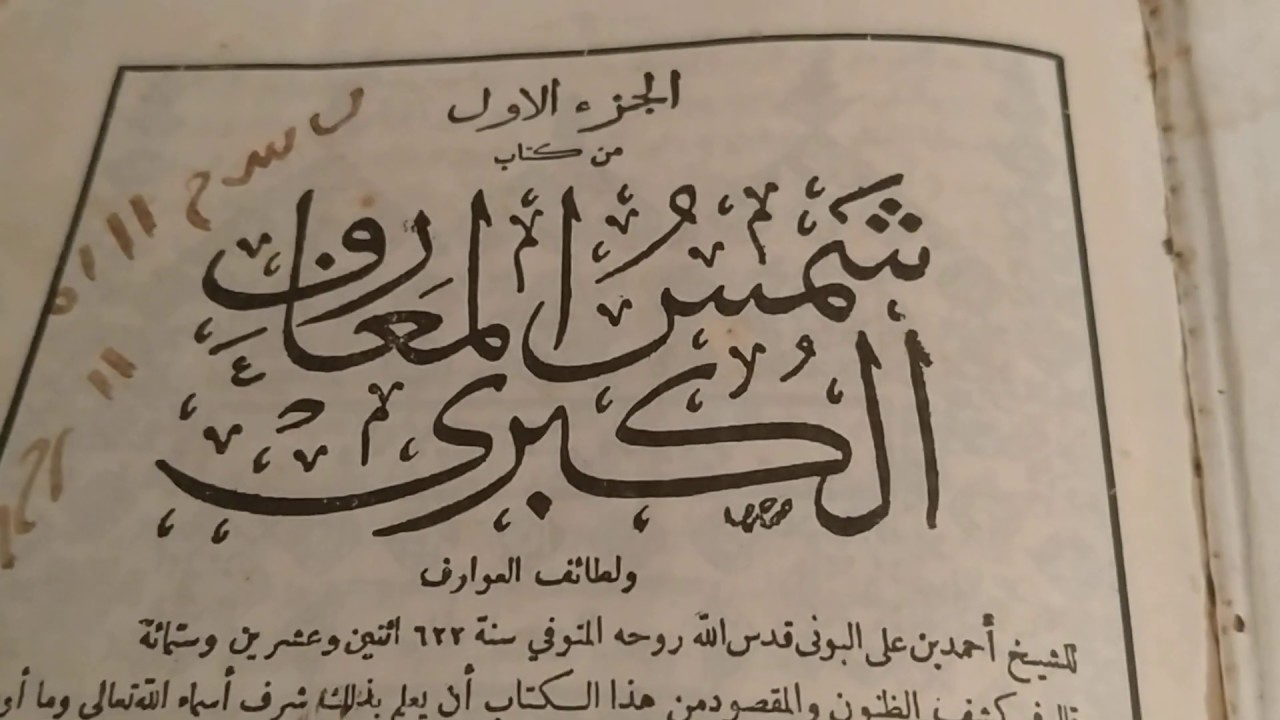 الجزء الاول
من كتاب
شَمْسُ المَعَارِف
الكُبرى
ولطائف العوارف
للشيخ أحمد بن على البونى قدس الله روحه المتوفي سنة ٦٢٢ اثنين وعشرين وستمائة
كشف الظنون والمقصود من هذا الكتاب أن يعلم بذلك شرف أسماء الله تعالى وما